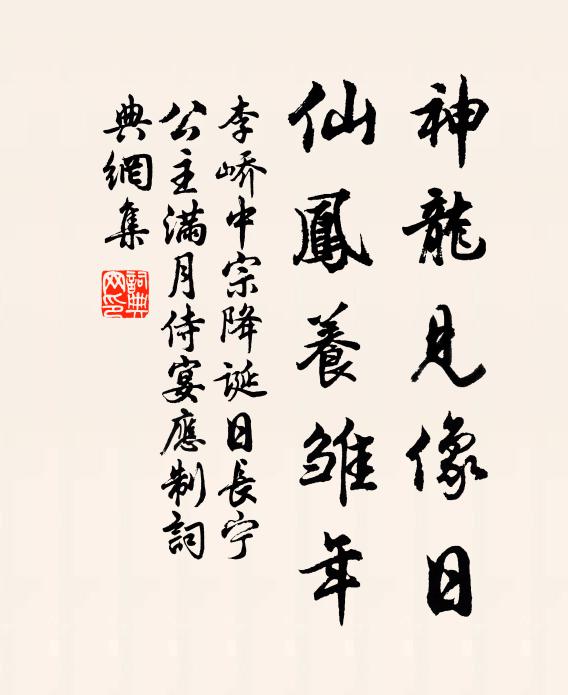 神龍見像日
仙鳳養雛年
李嶠中宗降誕日長宁
公主滿月侍宴應制詞
典網集
詞典
网印